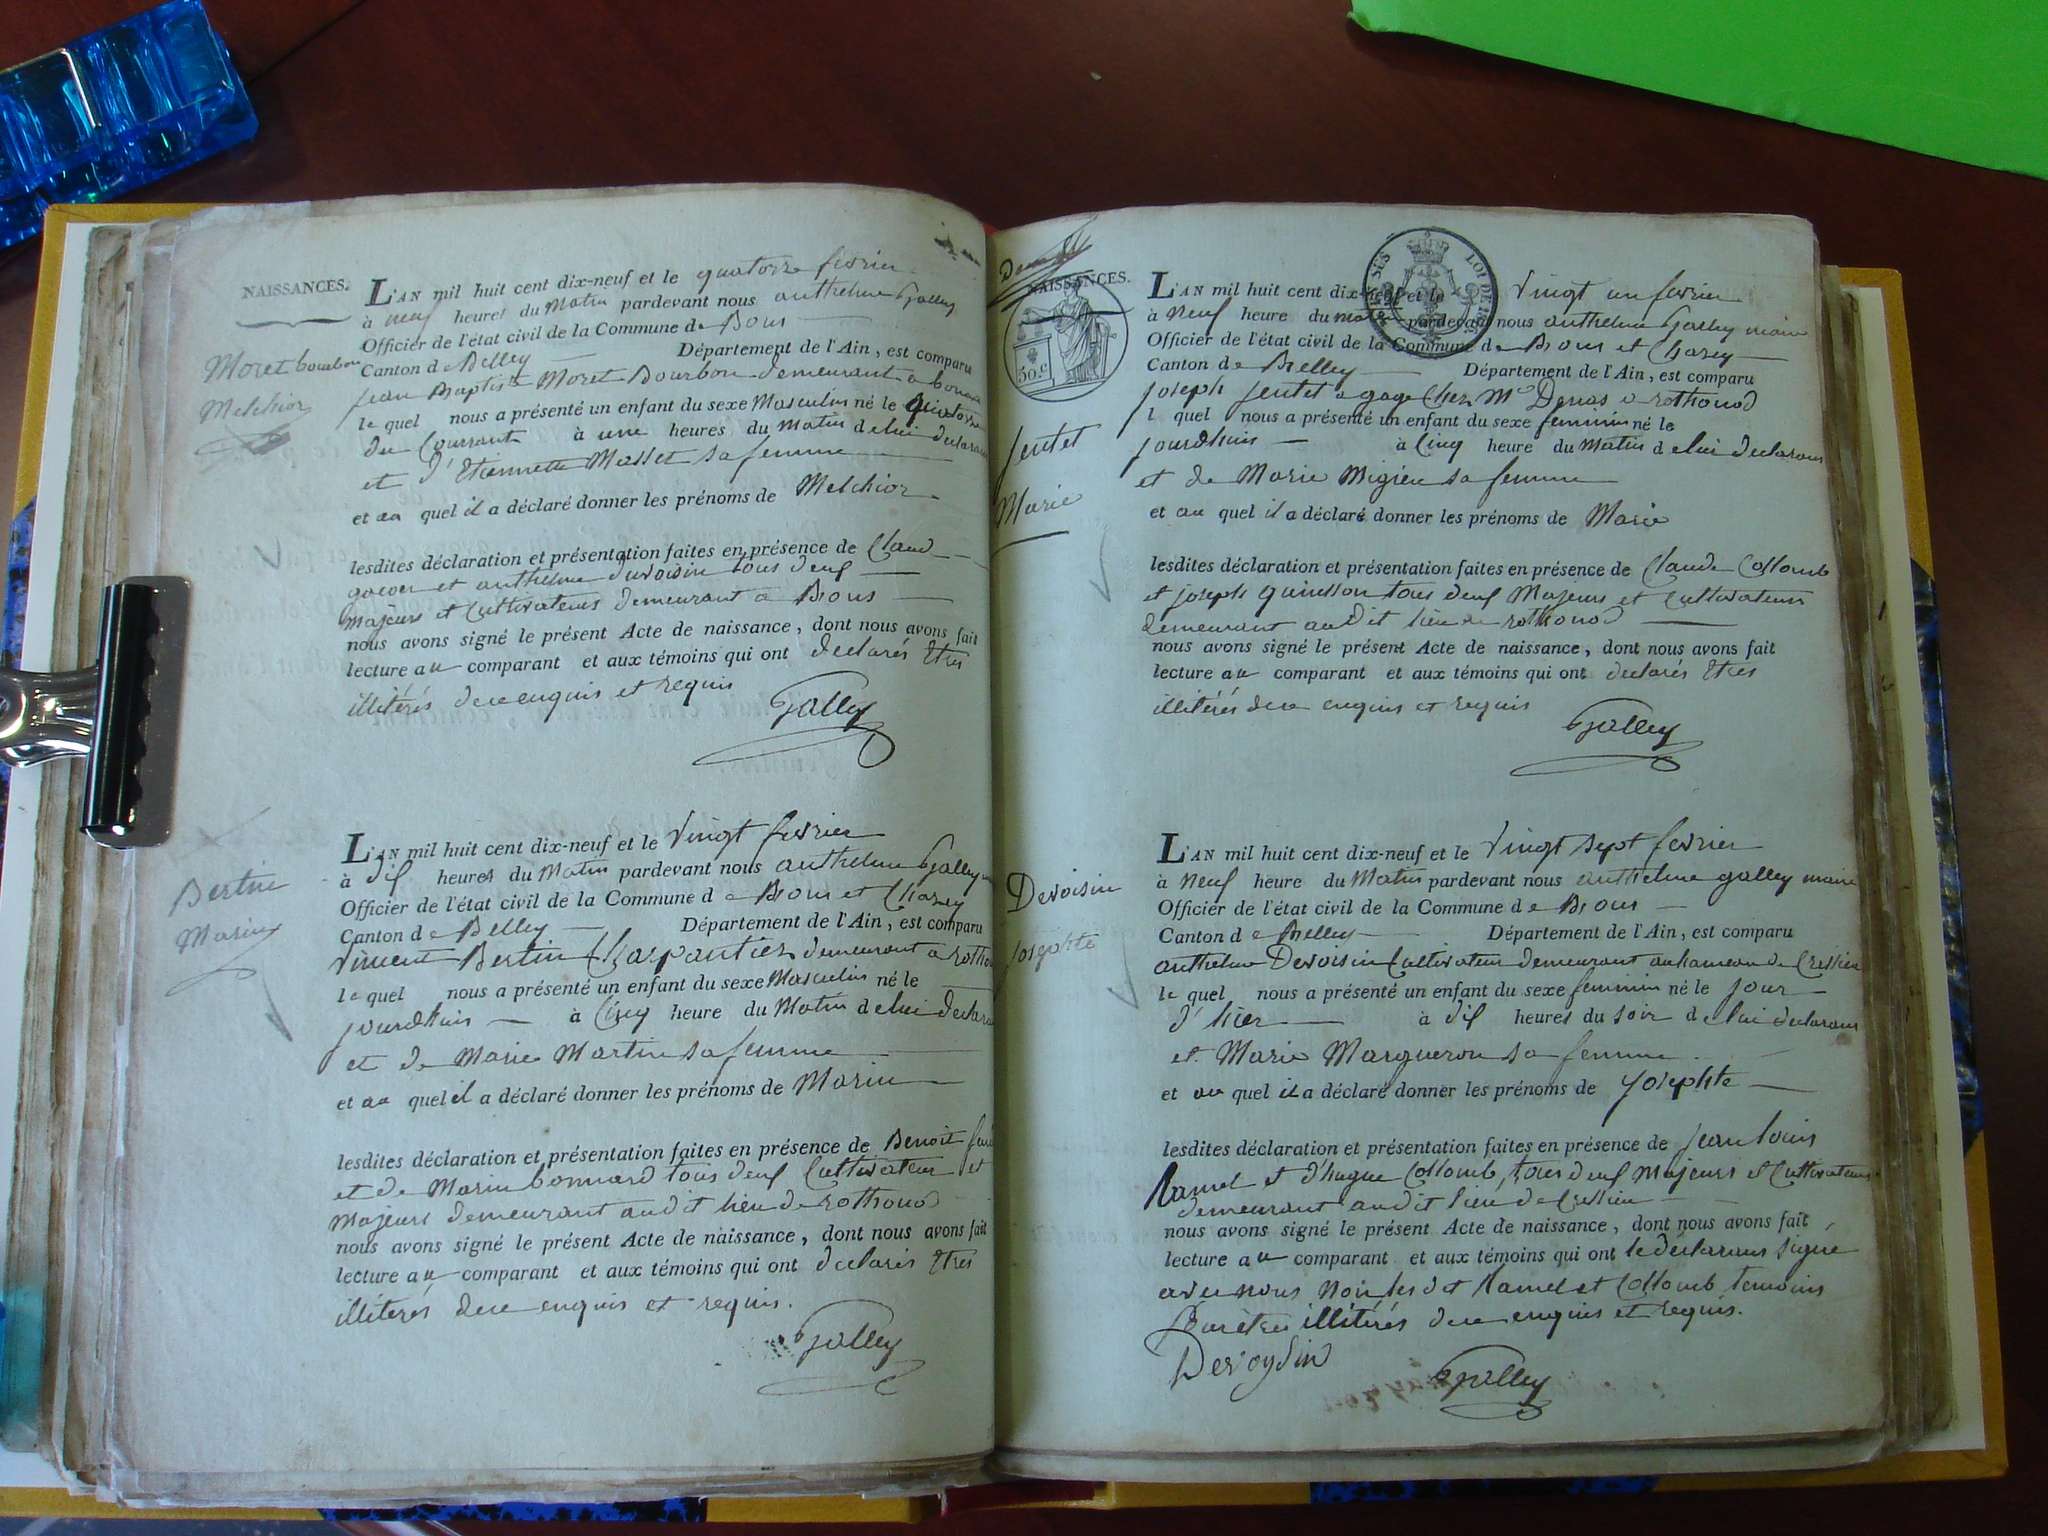 NAISSANCES.
L'AN mil huit cent dix-neuf et le quatorze fevrier
à neuf heures du Matin pardevant nous anthelme Galley
Officier de l'état civil de la Commune de Bons
Canton de Belley Département de l'Ain, est comparu
Moret bourbon
Melchior
jean Baptiste Moret Bourbon demeurant a bons
le quel nous a présenté un enfant du sexe Masculin né le quatorze
du Courrant à une heures du matin de lui declarant
et d'Etiennette Masset sa femme
et au quel il a déclaré donner les prénoms de Melchior
lesdites déclaration et présentation faites en présence de Claude
et anthelme Devoisin tous deux
majeurs et Cultivateurs demeurant a Bons
nous avons signé le présent Acte de naissance, dont nous avons fait
lecture au comparant et aux témoins qui ont declarés Etres
illitérés de ce enquis et requis
Galley
L'AN mil huit cent dix-neuf et le Vingt fevrier
à dix heures du Matin pardevant nous anthelme Galley
Officier de l'état civil de la Commune de Bons et Chazey
Canton de Belley Département de l'Ain, est comparu
Bertin
Marin
Vincent Bertin Charpantier demeurant a rothonod
le quel nous a présenté un enfant du sexe Masculin né le
jourdhuis à Cinq heure du Matin de lui declarant
et de Marie Martin sa femme
et au quel il a déclaré donner les prénoms de Marin
lesdites déclaration et présentation faites en présence de Benoit
et de Marin bonnard tous deux Cultivateur et
Majeurs demeurant audit lieu de rothonod
nous avons signé le présent Acte de naissance, dont nous avons fait
lecture au comparant et aux témoins qui ont declarés Etres
illitérés de ce enquis et requis.
Galley
NAISSANCES.
30.c
LOI DE
L'AN mil huit cent dix-neuf et le Vingt un fevrier
à Neuf heure du matin pardevant nous anthelme Galley maire
Officier de l'état civil de la Commune de Bons et Chazey
Canton de Belley Département de l'Ain, est comparu
Jentet
Marie
joseph Jentet a gage Chez Mr Denas a rothonod
le quel nous a présenté un enfant du sexe feminin né le
jourdhuis à Cinq heure du Matin de lui declarant
et de Marie Migieu sa femme
et au quel il a déclaré donner les prénoms de Marie
lesdites déclaration et présentation faites en présence de Claude Collomb
et joseph quinson tous deux Majeurs et Cultivateurs
demeurant audit lieu de rothonod
nous avons signé le présent Acte de naissance, dont nous avons fait
lecture au comparant et aux témoins qui ont declarés Etres
illitérés de ce enquis et requis
Galley
L'AN mil huit cent dix-neuf et le Vingt sept fevrier
à Neuf heure du Matin pardevant nous anthelme galley maire
Officier de l'état civil de la Commune de Bons
Canton de Belley Département de l'Ain, est comparu
Devoisin
Josephte
anthelme Devoisin Cultivateur demeurant au hameau de Cressieu
le quel nous a présenté un enfant du sexe feminin né le jour
d'hier à dix heures du soir de lui declarant
et Marie Margueron sa femme
et au quel il a déclaré donner les prénoms de Josephte
lesdites déclaration et présentation faites en présence de jean louis
Ramel et d'hugue Collomb, tous deux Majeurs et Cultivateurs
demeurant audit lieu de Cressieu
nous avons signé le présent Acte de naissance, dont nous avons fait
lecture au comparant et aux témoins qui ont le déclarant signé
avec nous Non lesdit Ramel et Collomb temoins
Pour être illitérés de ce enquis et requis.
Devoysin
Galley